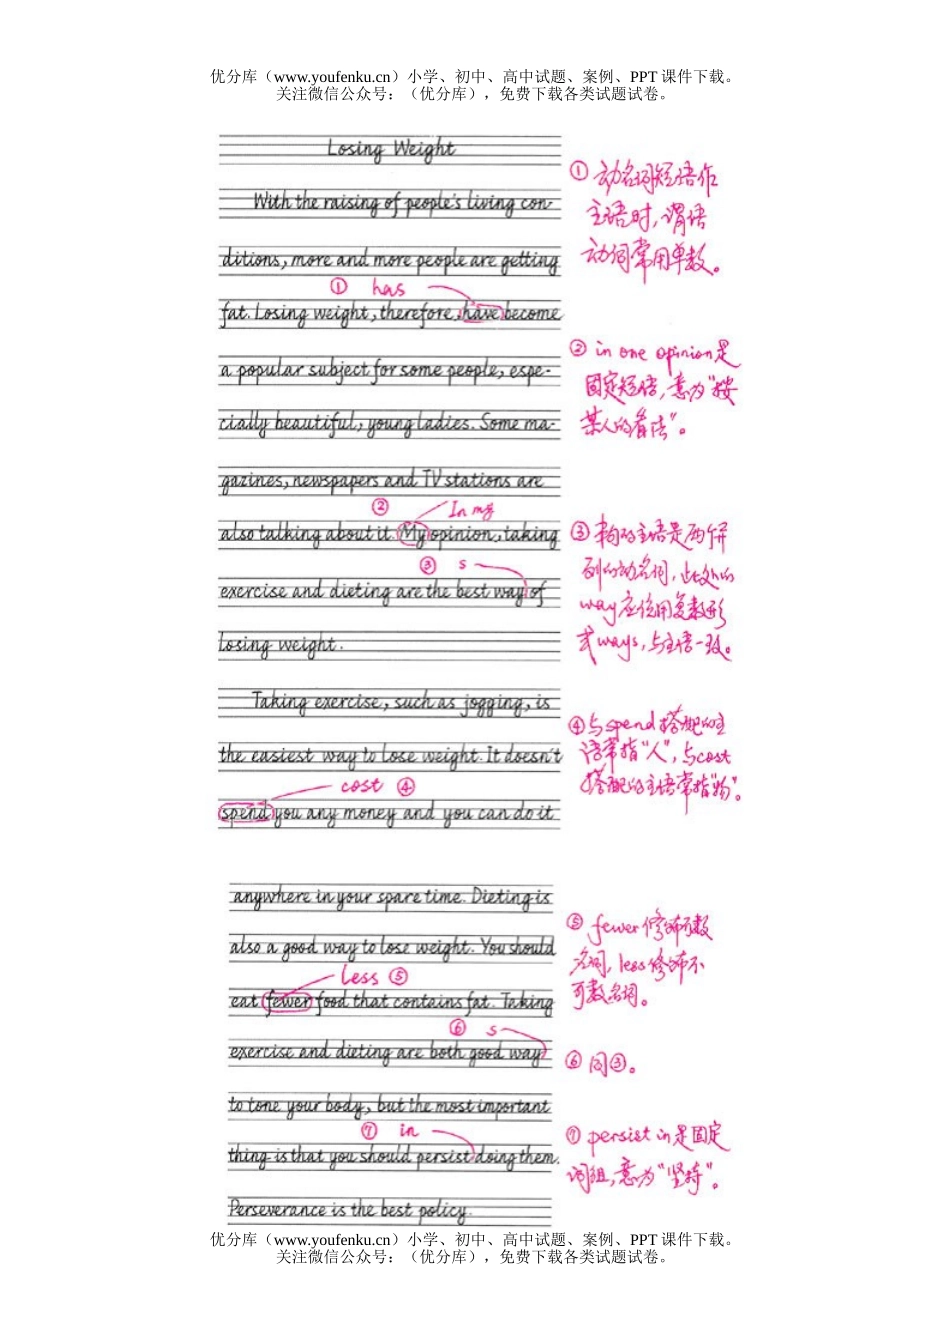 优分库（www.youfenku.cn）小学、初中、高中试题、案例、PPT 课件下载。
关注微信公众号：（优分库），免费下载各类试题试卷。
Losing Weight
With the raising of people's living con-
ditions, more and more people are getting
① has
fat. Losing weight, therefore, have become
a popular subject for some people, espe-
cially beautiful, young ladies. Some ma-
gazines, newspapers and TV stations are
② In my
also talking about it. My opinion, taking
③ s
exercise and dieting are the best way of
losing weight.
Taking exercise, such as jogging, is
the easiest way to lose weight. It doesn't
cost ④
spend you any money and you can do it
① 动名词短语作
主语时,谓语
动词常用单数。
② in one opinion是
固定短语,意为"按
某人的看法"。
③ 本句的主语是两个并
列的动名词,此处的
way应使用复数形
式ways,与主语一致。
④与spend搭配的主
语常指"人",与cost
搭配的主语常指"物"。
anywhere in your spare time. Dieting is
also a good way to lose weight. You should
less ⑤
eat fewer food that contains fat. Taking
⑥ s
exercise and dieting are both good way
to tone your body, but the most important
⑦ in
thing is that you should persist doing them.
Perseverance is the best policy.
⑤ fewer修饰可数
名词, less修饰不
可数名词。
⑥ 同③。
⑦ persist in是固定
词组,意为"坚持"。
优分库（www.youfenku.cn）小学、初中、高中试题、案例、PPT 课件下载。
关注微信公众号：（优分库），免费下载各类试题试卷。